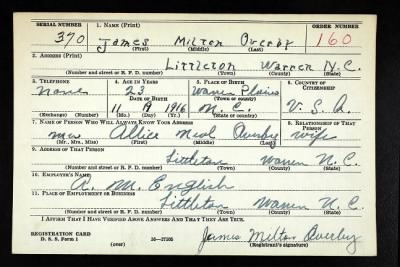 SERIAL NUMBER 1. NAME (Print) ORDER NUMBER
370 James Milton Overby 160
(First) (Middle) (Last)
2. ADDRESS (Print)
Littleton Warren N.C.
(Number and street or R. F. D. number) (Town) (County) (State)
3. TELEPHONE 4. AGE IN YEARS 5. PLACE OF BIRTH 6. COUNTRY OF CITIZENSHIP
None 23 Warren Plains
DATE OF BIRTH (Town or county)
11 9 1916 N.C. U.S.A.
(Exchange) (Number) (Mo.) (Day) (Yr.) (State or country)
7. NAME OF PERSON WHO WILL ALWAYS KNOW YOUR ADDRESS 8. RELATIONSHIP OF THAT PERSON
Mrs Allice Neal Overby wife
(Mr., Mrs., Miss) (First) (Middle) (Last)
9. ADDRESS OF THAT PERSON
Littleton Warren N.C.
(Number and street or R. F. D. number) (Town) (County) (State)
10. EMPLOYER'S NAME
R. M. English
11. PLACE OF EMPLOYMENT OR BUSINESS
Littleton Warren N.C.
(Number and street or R. F. D. number) (Town) (County) (State)
I AFFIRM THAT I HAVE VERIFIED ABOVE ANSWERS AND THAT THEY ARE TRUE.
REGISTRATION CARD
D. S. S. Form 1 (over) 16—17105 James Milton Overby
(Registrant's signature)